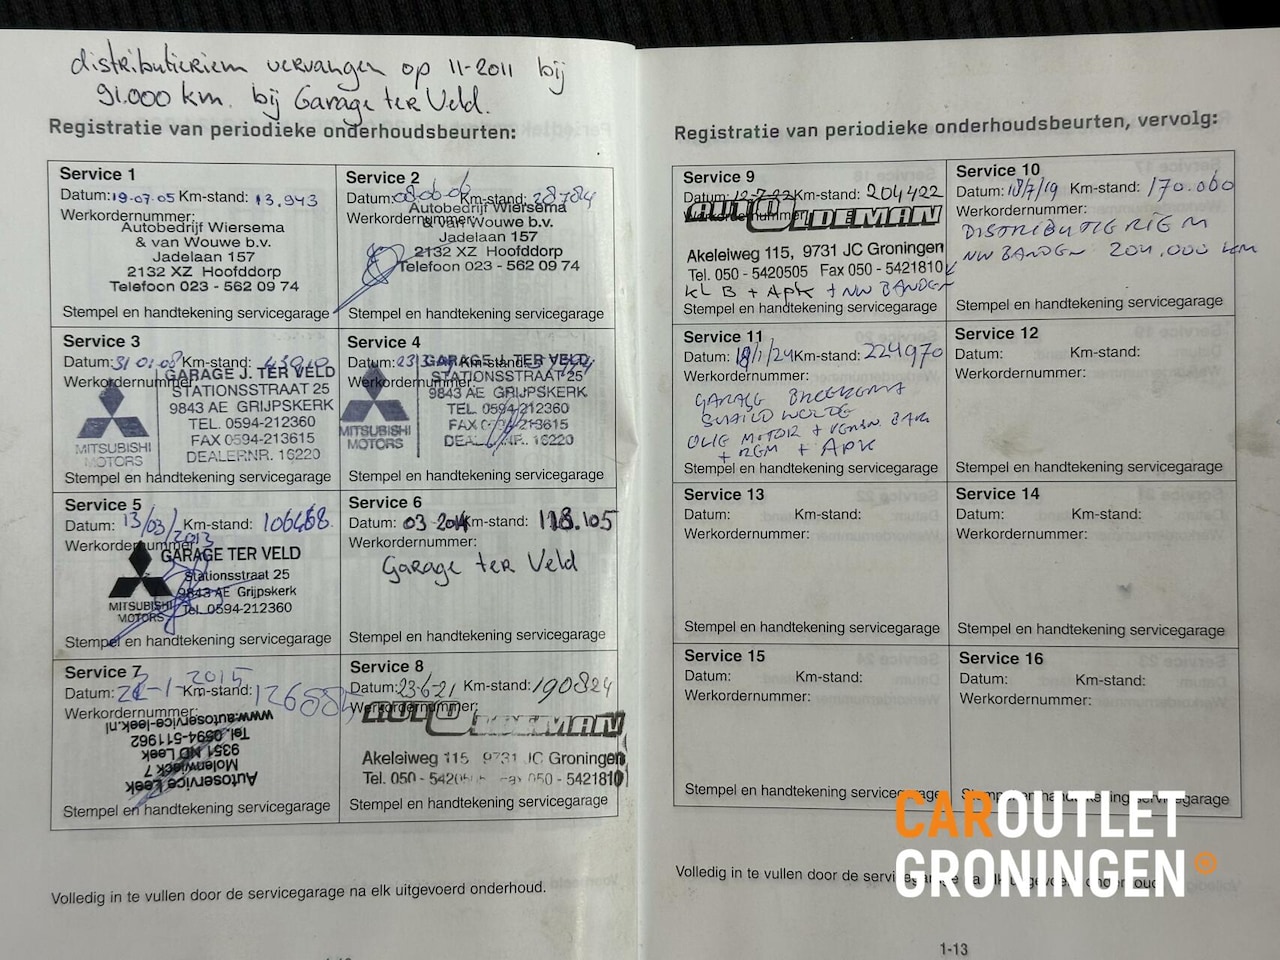 distributieriem vervangen op 11-2011 bij
91.000 km. bij Garage ter Veld.
Registratie van periodieke onderhoudsbeurten:
Service 1
Datum: 19-07-05 Km-stand: 13.943
Werkordernummer:
Autobedrijf Wiersema
& van Wouwe b.v.
Jadelaan 157
2132 XZ Hoofddorp
Telefoon 023 - 562 09 74
Stempel en handtekening servicegarage
Service 2
Datum: 08-06-06 Km-stand: 28784
Werkordernummer:
Autobedrijf Wiersema
& van Wouwe b.v.
Jadelaan 157
2132 XZ Hoofddorp
Telefoon 023 - 562 09 74
Stempel en handtekening servicegarage
Service 3
Datum: 31-01-08 Km-stand:
Werkordernummer:
GARAGE J. TER VELD
STATIONSSTRAAT 25
9843 AE GRIJPSKERK
TEL. 0594-212360
FAX 0594-213615
DEALERNR. 16220
MITSUBISHI
MOTORS
Stempel en handtekening servicegarage
Service 4
Datum: Km-stand:
Werkordernummer:
GARAGE J. TER VELD
STATIONSSTRAAT 25
9843 AE GRIJPSKERK
TEL. 0594-212360
FAX 0594-213615
DEALERNR. 16220
MITSUBISHI
MOTORS
Stempel en handtekening servicegarage
Service 5
Datum: 13/03/2013 Km-stand: 106468
Werkordernummer:
GARAGE TER VELD
Stationsstraat 25
9843 AE Grijpskerk
Tel. 0594-212360
MITSUBISHI
MOTORS
Stempel en handtekening servicegarage
Service 6
Datum: 03-2014 Km-stand: 118.105
Werkordernummer:
Garage ter Veld
Stempel en handtekening servicegarage
Service 7
Datum: 22-1-2015 Km-stand: 126884
Werkordernummer:
Autoservice Leek
Molenwijck 7
9351 ND Leek
Tel. 0594-511962
www.autoservice-leek.nl
Stempel en handtekening servicegarage
Service 8
Datum: 23-6-21 Km-stand: 190824
Werkordernummer:
AUTO OLDEMAN
Akeleiweg 115, 9731 JC Groningen
Tel. 050 - 5420505 Fax 050 - 5421810
Stempel en handtekening servicegarage
Volledig in te vullen door de servicegarage na elk uitgevoerd onderhoud.
Registratie van periodieke onderhoudsbeurten, vervolg:
Service 9
Datum: Km-stand: 204422
Werkordernummer:
AUTO OLDEMAN
Akeleiweg 115, 9731 JC Groningen
Tel. 050 - 5420505 Fax 050 - 5421810
KL B + APK + NW BANDEN
Stempel en handtekening servicegarage
Service 10
Datum: 18/7/19 Km-stand: 170.000
Werkordernummer:
DISTRIBUTIERIEM
NW BANDEN 204.000 km
Stempel en handtekening servicegarage
Service 11
Datum: 18/1/24 Km-stand: 224970
Werkordernummer:
GARAGE
OLIE MOTOR +
+ REM + APK
Stempel en handtekening servicegarage
Service 12
Datum: Km-stand:
Werkordernummer:
Stempel en handtekening servicegarage
Service 13
Datum: Km-stand:
Werkordernummer:
Stempel en handtekening servicegarage
Service 14
Datum: Km-stand:
Werkordernummer:
Stempel en handtekening servicegarage
Service 15
Datum: Km-stand:
Werkordernummer:
Stempel en handtekening servicegarage
Service 16
Datum: Km-stand:
Werkordernummer:
Stempel en handtekening servicegarage
Volledig in te vullen door de servicegarage na elk uitgevoerd onderhoud.
1-13
CAROUTLET
GRONINGEN